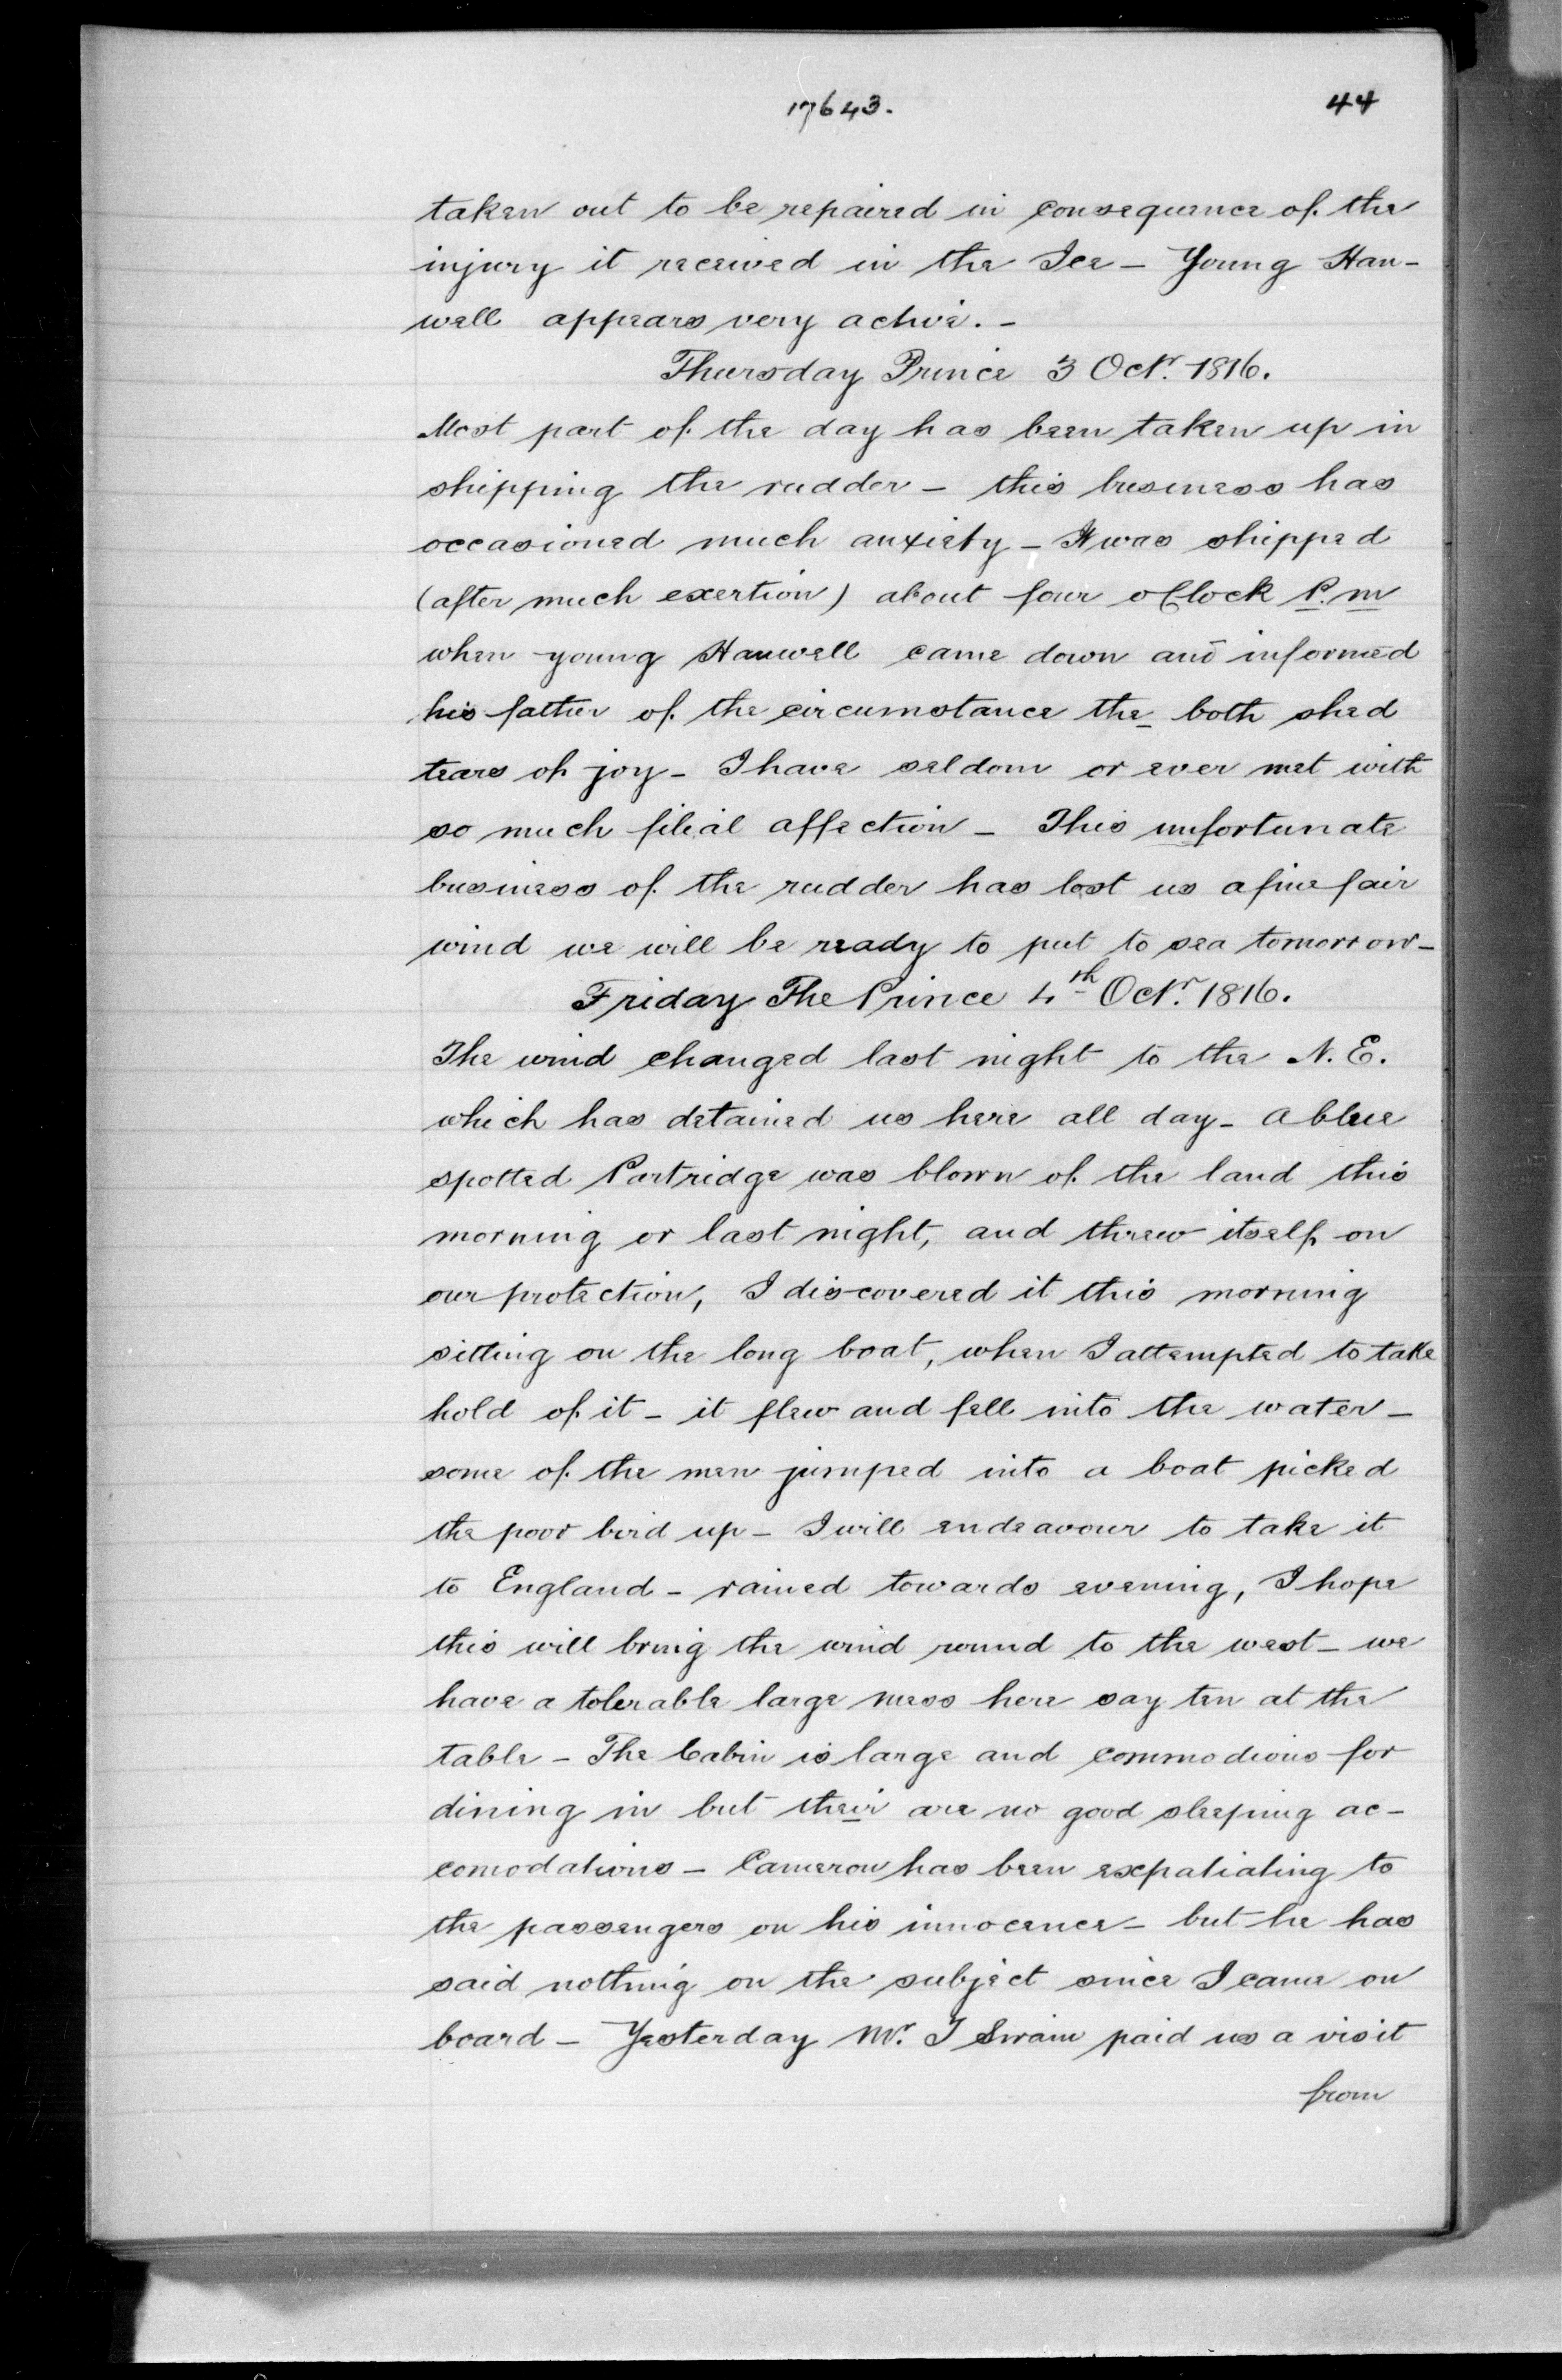 17643.
44
taken out to be repaired in consequence of the
injury it received in the Ice – Young Han-
well appears very active. –
Thursday Prince 3 Octr. 1816.
Most part of the day has been taken up in
shipping the rudder – this business has
occasioned much anxiety – It was shipped
(after much exertion) about four oClock P.m
when young Hanwell came down and informed
his father of the circumstance the both shed
tears of joy – I have seldom or ever met with
so much filial affection – This unfortunate
business of the rudder has lost us a fine fair
wind we will be ready to put to sea tomorrow –
Friday The Prince 4th Octr. 1816.
The wind changed last night to the N. E.
which has detained us here all day – a blue
spotted Partridge was blown of the land this
morning or last night, and threw itself on
our protection, I discovered it this morning
sitting on the long boat, when I attempted to take
hold of it – it flew and fell into the water –
some of the men jumped into a boat picked
the poor bird up – I will endeavour to take it
to England – rained towards evening, I hope
this will bring the wind round to the west – we
have a tolerable large mess here say ten at the
table – The Cabin is large and commodious for
dining in but their are no good sleeping ac-
comodations – Cameron has been expatiating to
the passengers on his innocence – but he has
said nothing on the subject since I came on
board – Yesterday Mr. I Swain paid us a visit
from